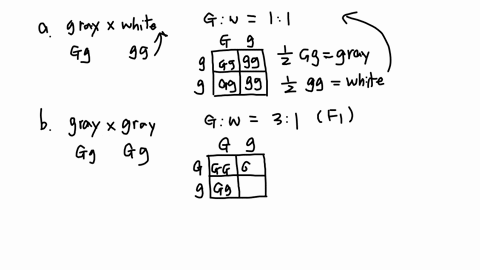 a. gray x white
Gg gg
G:w = 1:1
G g
g Gg gg
g Gg gg
1/2 Gg = gray
1/2 gg = white
b. gray x gray
Gg Gg
G:w = 3:1 (F1)
G g
G GG G
g Gg